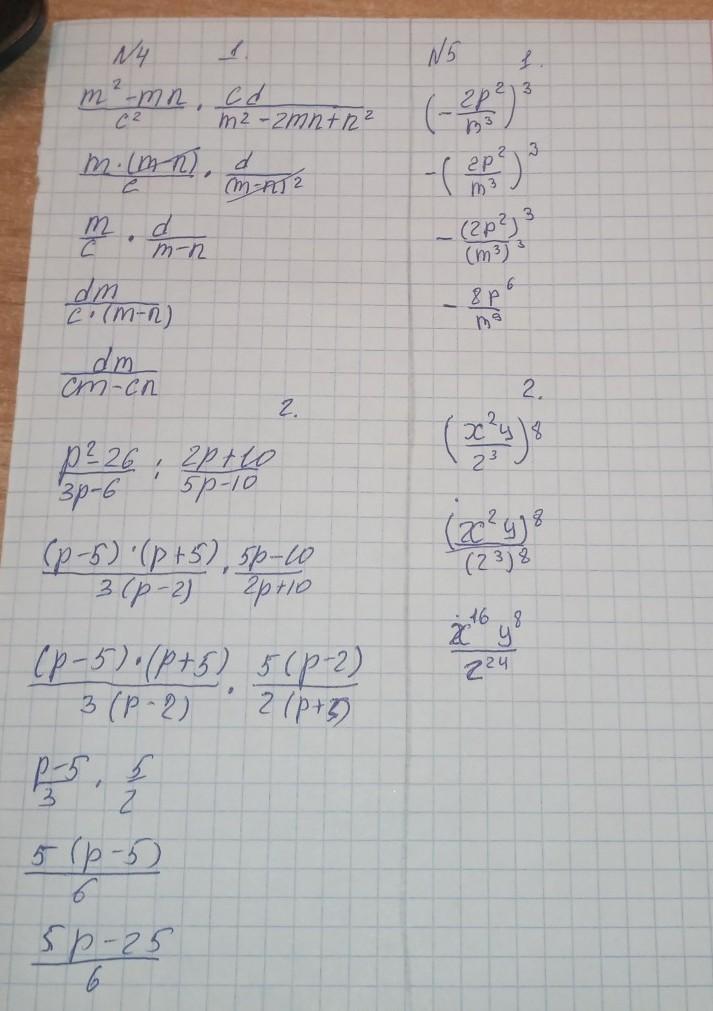 N4 1.
(m² - mn)/c² · cd/(m² - 2mn + n²)
m·(m-n)/c · d/(m-n)²
m/c · d/(m-n)
dm/(c·(m-n))
dm/(cm-cn)
2.
(p²-26)/(3p-6) : (2p+10)/(5p-10)
(p-5)·(p+5)/(3(p-2)) · (5p-10)/(2p+10)
(p-5)·(p+5)/(3(p-2)) · 5(p-2)/(2(p+5))
(p-5)/3 · 5/2
5(p-5)/6
(5p-25)/6
N5 1.
(-2p²/m³)³
-(2p²/m³)³
-(2p²)³/(m³)³
-8p⁶/m⁹
2.
(x²y/z³)⁸
(x²y)⁸/(z³)⁸
x¹⁶y⁸/z²⁴